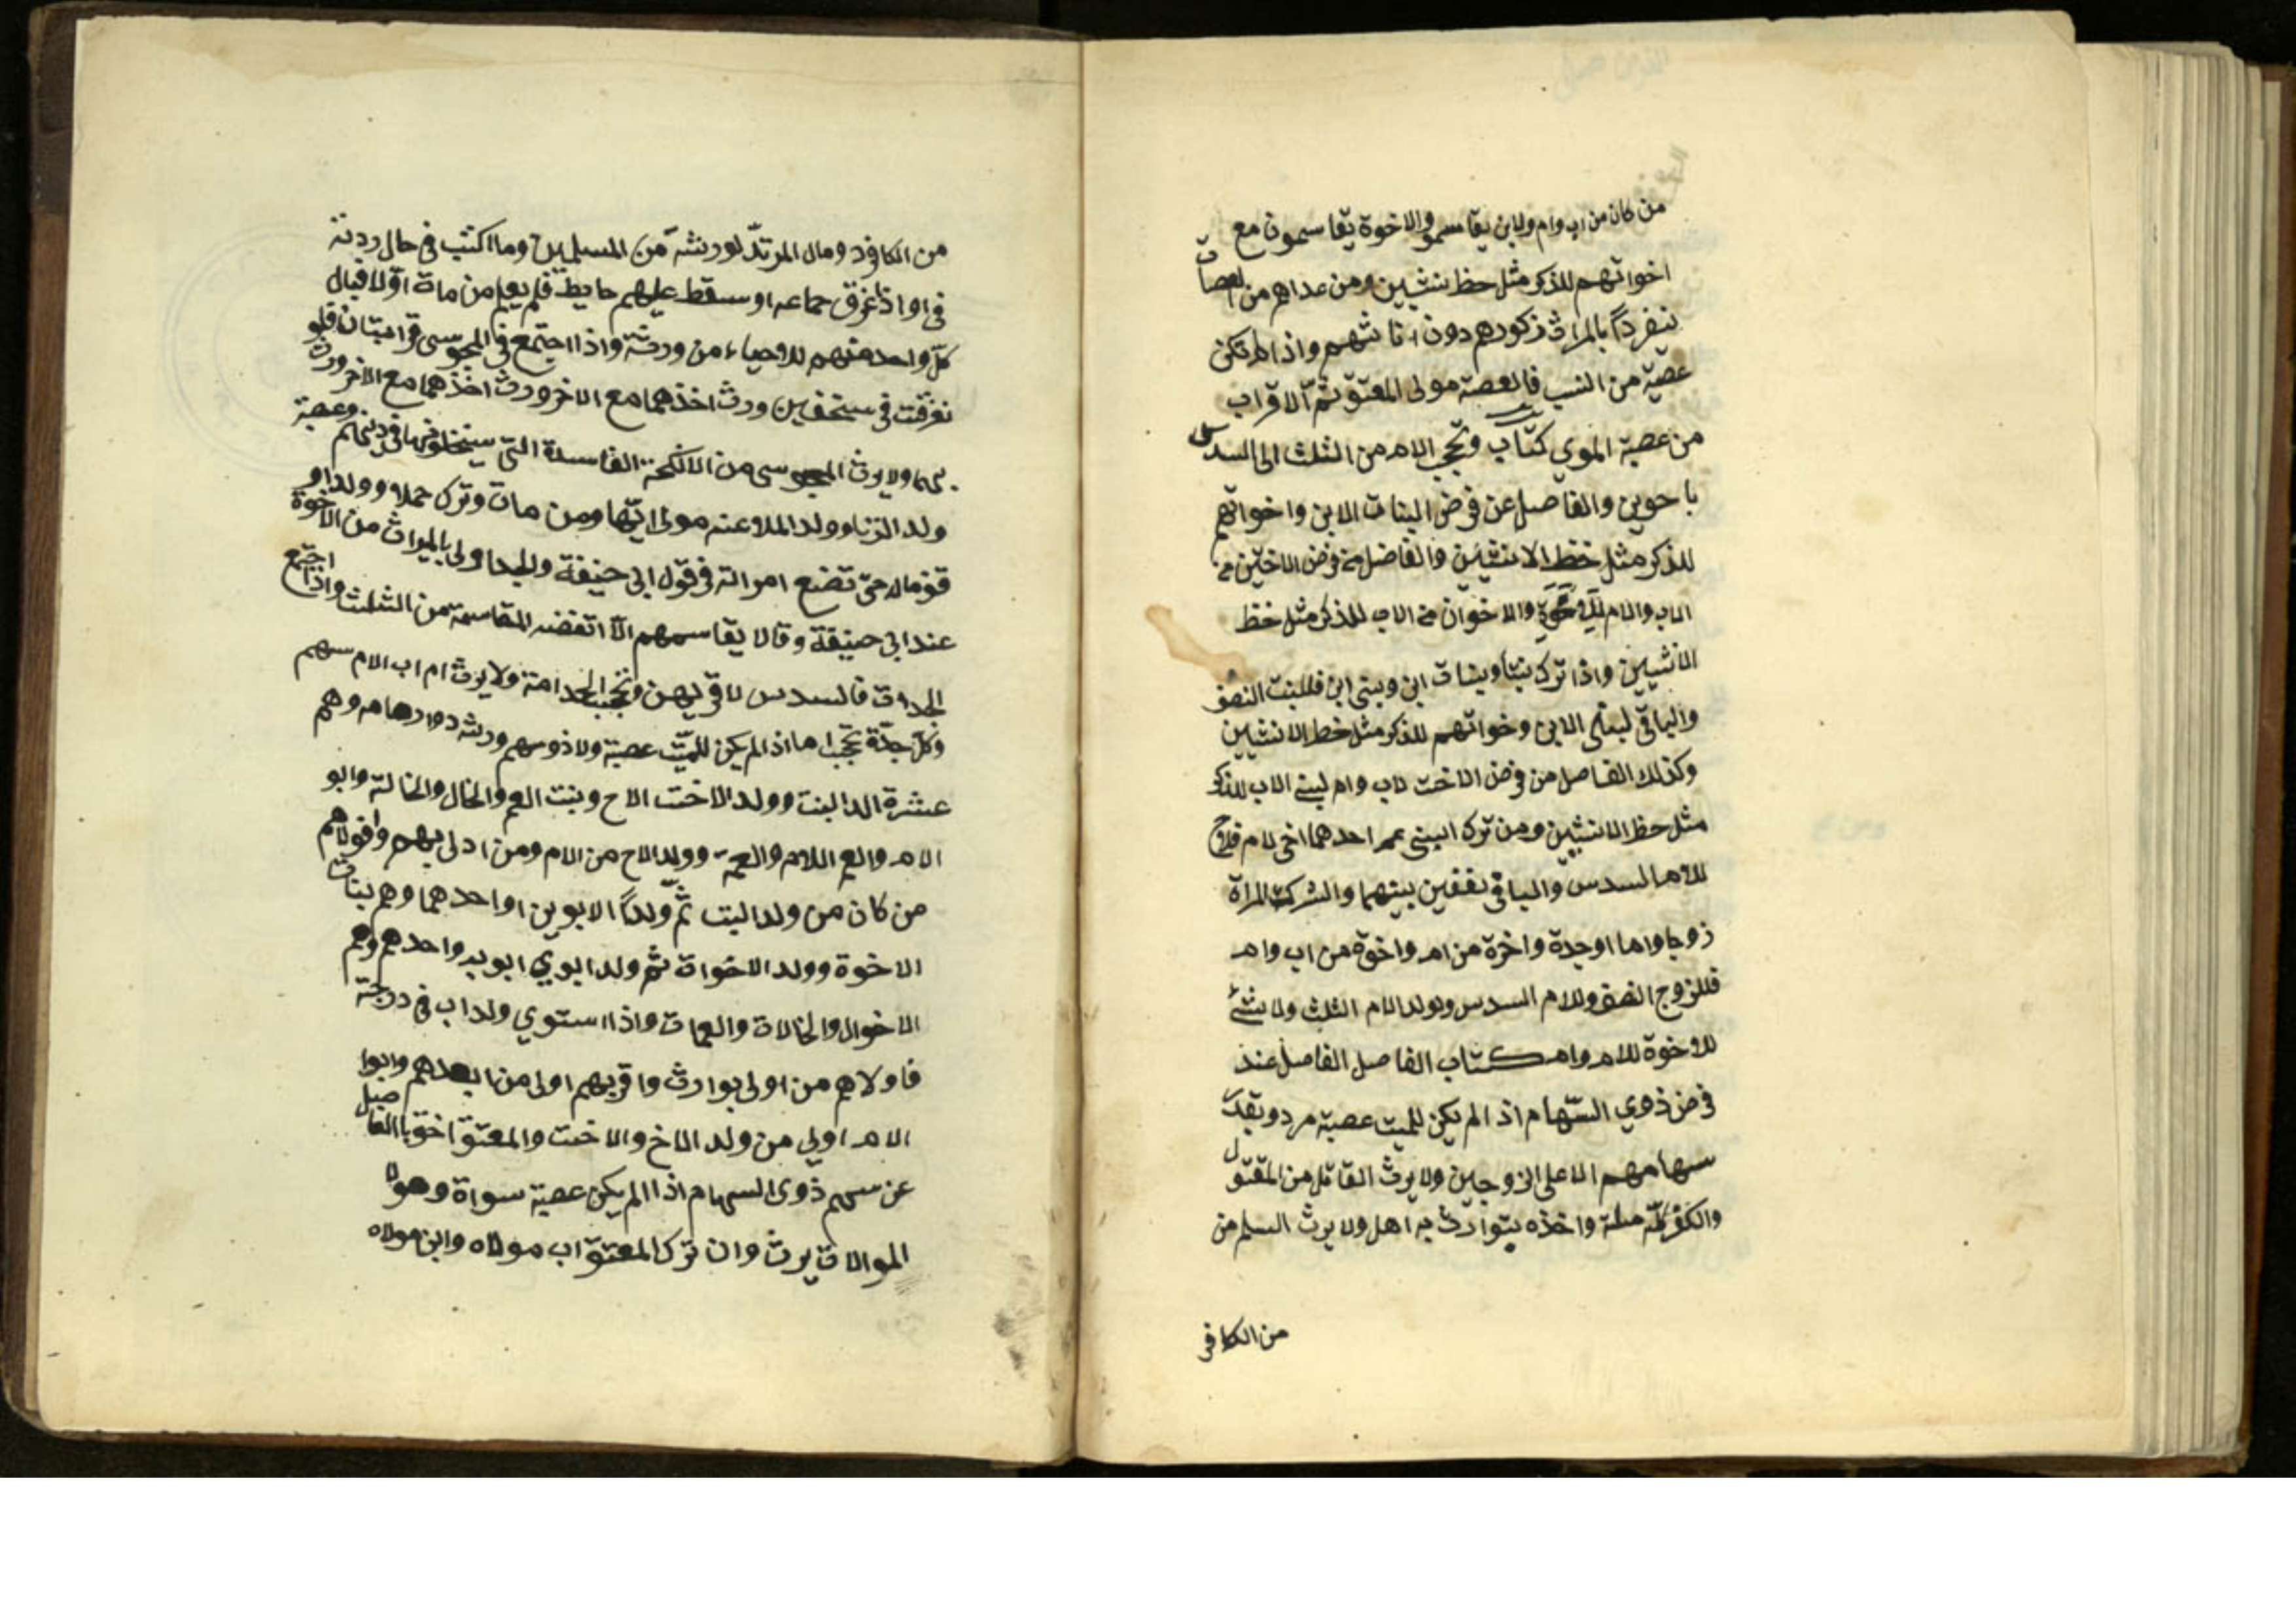 من كان من اب وام ولابن يقاسمو والاخوة يقاسمون مع
اخواتهم للذكر مثل حظ نثيين ومن عداهم من العصات
نيفرداً بالمراث ذكورهم دون اناثهم واذا لم تكن
عصبة من النسب فالعصبة مولى المعتق ثم الاقراب
من عصبة الموي كتاب وتحجب الام من الثلث الى السدس
باحوين والفاصل عن فرض البنات الابن واخواتهم
للذكر مثل خظ الانثيين والفاضل من فرض الاختين من
الاب والام والاخوان من الاب للذكر مثل خظ
الانثيين واذا ترك بنتا وبنات ابن وبني ابن فللبنت النصف
والباقي لبنى الابن وخواتهم للذكر مثل خط الانثيين
وكذلك الفاصل من فرض الاخت لاب وام لبني الاب للذكر
مثل حظ الانثيين ومن ترك ابني عم احدهما اخي لام فللاخ
للام السدس والباقي نففين بينهما والشركت المراة
زوجا واما اوجدة واخرة من ام واخوة من اب وام
فللزوج النصف وللام السدس ولولد الام الثلث ولا شئ
للاخوة للام وام كتاب الفاصل الفاصل عند
فرض ذوي السهام اذ الم يكن للميت عصبة مردو بقدر
سهامهم الا على الزوجين ولا يرث القاتل من المقتول
والكفر كله ملة واخذه يتوارث به اهل ولا يرث السلم من
من الكافر
من الكافرد ومال المرتد لورشة من المسلمين وما اكتب في حال ردته
في اواذا غرق جماعه او سقط عليهم حايط فلم يعلم من ماة اولا فيال
كل واحد منهم للاحياء من ورثة واذا اجتمع في المجوسى قرابتان فلو
نفرقت في سخفين ورث اخذهما مع الاخر ورث اخذهما مع الاخر ورث
بهما ولا يرث المجوسى من الانكحة الفاسدة التى سيخلونها في دنهم وعصبة
ولد الزنا وولد الملاعنه مولى امّها ومن مات وترك حملا وولد او
قف ماله حتى تضع امراته في قول ابي حنيفة والجد اولى بالميراث من الاخوة
عند ابي حنيفة وقالا يقاسمهم الا اتفضه للمقاسمة من الثلث واذا اجتمع
الجدات فالسدس لاقربهن وتحجب الجد امة ولا يرث ام اب الام سهم
وكل جدة تحجب اما اذ الم يكن للميت عصبة ولا ذوسهم ورشه ذوارحامه وهم
عشرة الد البنت وولد الاخت الاح وبنت العم والخال والخالة وابو
الام والعم اللام والعمة وولد الاح من الام ومن ادلى بهم وافولاهم
من كان من ولد البت ثم ولداً الابوين او احدهما وهم بنات
الاخوة وولد الاخواة ثم ولد ابوي ابويه واحدهم وهم
الاخوال والخالات والعمات واذا استوي ولد اب في درجة
فاولاهم من اولى بوارث واقربهم اولى من ابعدهم وابوا
الام اولي من ولد الاخ والاخت والمعتق اخق باالفاضل
عن سهم ذوى السهام اذ االم يكن عصبة سواة وهولا
الموالات يرث وان ترك المعتق اب مولاه وابن مولاه